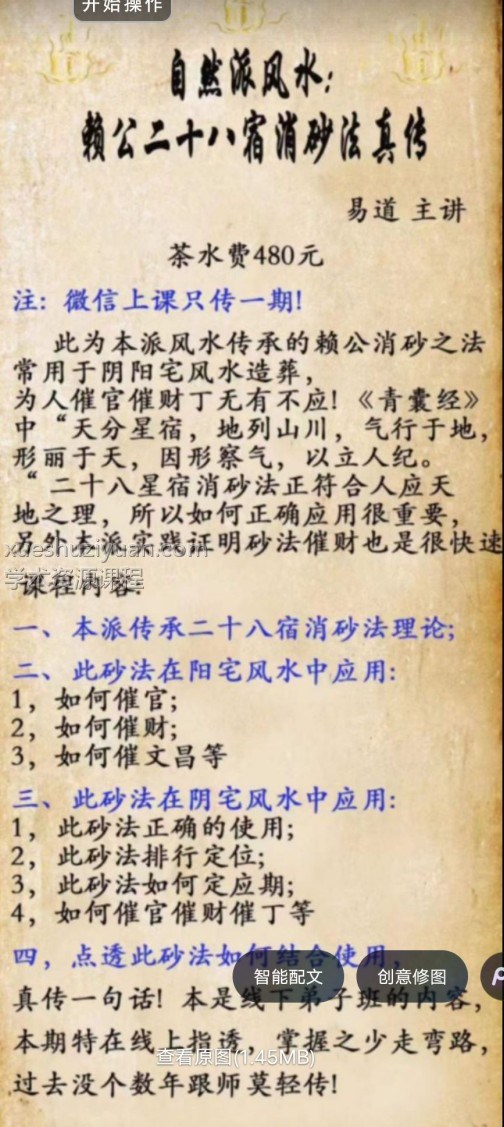 开始操作
自然派风水:
赖公二十八宿消砂法真传
易道 主讲
茶水费480元
注: 微信上课只传一期!
此为本派风水传承的赖公消砂之法
常用于阴阳宅风水造葬,
为人催官催财丁无有不应! 《青囊经》
中“天分星宿, 地列山川, 气行于地,
形丽于天, 因形察气, 以立人纪。
“ 二十八星宿消砂法正符合人应天
地之理, 所以如何正确应用很重要,
另外本派实践证明砂法催财也是很快速
xueshuziyuan.com
学术资源课程
课程内容:
一、本派传承二十八宿消砂法理论;
二、此砂法在阳宅风水中应用:
1, 如何催官;
2, 如何催财;
3, 如何催文昌等
三、此砂法在阴宅风水中应用:
1, 此砂法正确的使用;
2, 此砂法排行定位;
3, 此砂法如何定应期;
4, 如何催官催财催丁等
四, 点透此砂法如何结合使用,
智能配文
创意修图
真传一句话! 本是线下弟子班的内容,
本期特在线上指透, 掌握之少走弯路,
查看原图(1.45MB)
过去没个数年跟师莫轻传!